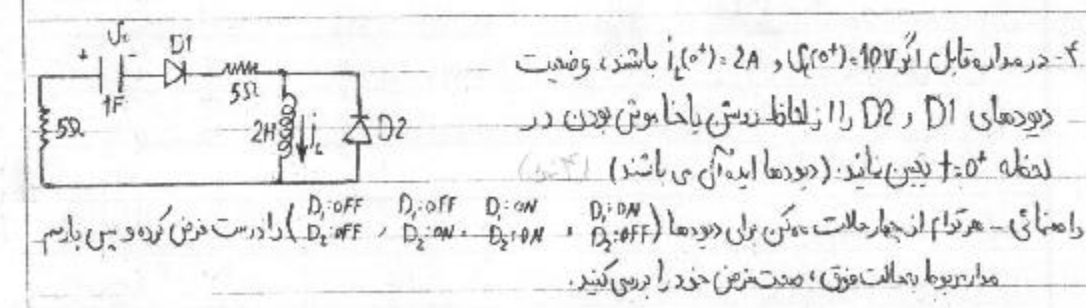 ۴- در مدار مقابل اگر Vc(0⁺)=10V و iL(0⁺)=2A باشند، وضعیت
دیودهای D1 و D2 را از لحاظ روشن یا خاموش بودن در
لحظه t=0⁺ تعیین نمائید. (دیودها ایده آل می باشند)
راهنمائی - هر کدام از چهار حالت ممکن برای دیودها (D₁:ON D₂:OFF ، D₁:ON D₂:ON ، D₁:OFF D₂:ON ، D₁:OFF D₂:OFF) را درست فرض کرده و سپس با رسم
مدار مربوط به حالت فوق، صحت فرض خود را بررسی کنید.
+ Vc - D1
1F 5Ω
5Ω 2H iL D2